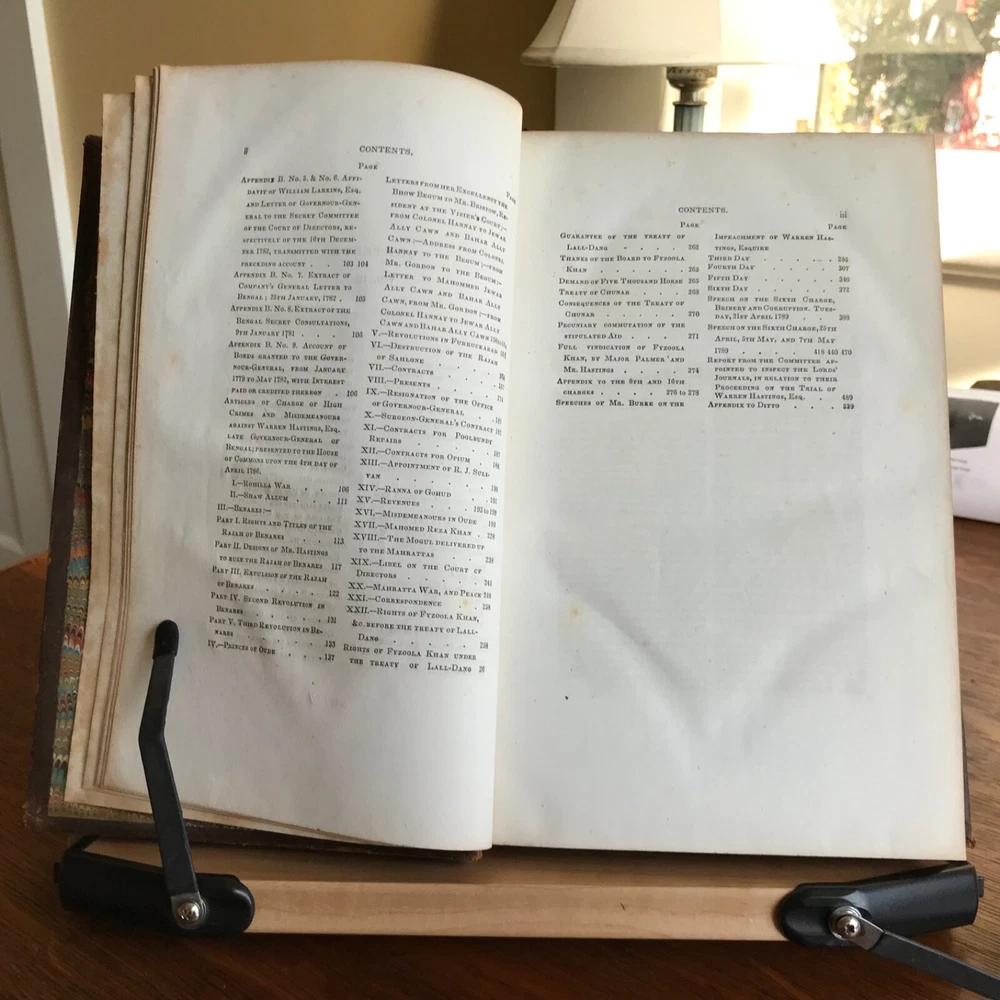 ii
CONTENTS.
PAGE
APPENDIX B. No. 5. & No. 6. AFFI-
DAVIT OF WILLIAM LARKINS, ESQ.
AND LETTER OF GOVERNOUR-GEN-
ERAL TO THE SECRET COMMITTEE
OF THE COURT OF DIRECTORS, RE-
SPECTIVELY OF THE 16TH DECEM-
BER 1782, TRANSMITTED WITH THE
PRECEDING ACCOUNT . . 103 104
APPENDIX B. No. 7. EXTRACT OF
COMPANY'S GENERAL LETTER TO
BENGAL; 25TH JANUARY, 1782 . 105
APPENDIX B. No. 8. EXTRACT OF THE
BENGAL SECRET CONSULTATIONS,
9TH JANUARY 1781 . . . 106
APPENDIX B. No. 9. ACCOUNT OF
BONDS GRANTED TO THE GOVER-
NOUR-GENERAL, FROM JANUARY
1779 TO MAY 1782, WITH INTEREST
PAID OR CREDITED THEREON . 106
ARTICLES OF CHARGE OF HIGH
CRIMES AND MISDEMEANOURS
AGAINST WARREN HASTINGS, ESQ.
LATE GOVERNOUR-GENERAL OF
BENGAL; PRESENTED TO THE HOUSE
OF COMMONS UPON THE 4TH DAY OF
APRIL 1786.
I.—ROHILLA WAR . . . 106
II.—SHAW ALLUM . . . 111
III.—BENARES:—
PART I. RIGHTS AND TITLES OF THE
RAJAH OF BENARES . . . 113
PART II. DESIGNS OF MR. HASTINGS
TO RUIN THE RAJAH OF BENARES 117
PART III. EXPULSION OF THE RAJAH
OF BENARES . . . . 122
PART IV. SECOND REVOLUTION IN
BENARES . . . . . 131
PART V. THIRD REVOLUTION IN BE-
NARES . . . . . 133
IV.—PRINCES OF OUDE . . . 137
PAGE
LETTERS FROM HER EXCELLENCY THE
BHOW BEGUM TO MR. BRISTOW, RE-
SIDENT AT THE VIZIER'S COURT;—
FROM COLONEL HANNAY TO JEWAR
ALLY CAWN AND BAHAR ALLY
CAWN;—ADDRESS FROM COLONEL
HANNAY TO THE BEGUM;—FROM
MR. GORDON TO THE BEGUM;—
LETTER TO MAHOMMED JEWAR
ALLY CAWN AND BAHAR ALLY
CAWN, FROM MR. GORDON;—FROM
COLONEL HANNAY TO JEWAR ALLY
CAWN AND BAHAR ALLY CAWN
V.—REVOLUTIONS IN FURRUCKABAD
VI.—DESTRUCTION OF THE RAJAH
OF SAHLONE
VII.—CONTRACTS
VIII.—PRESENTS
IX.—RESIGNATION OF THE OFFICE
OF GOVERNOUR-GENERAL
X.—SURGEON-GENERAL'S CONTRACT
XI.—CONTRACTS FOR POOLBUNDY
REPAIRS
XII.—CONTRACTS FOR OPIUM
XIII.—APPOINTMENT OF R. J. SULI-
VAN
XIV.—RANNA OF GOHUD
XV.—REVENUES
XVI.—MISDEMEANOURS IN OUDE
XVII.—MAHOMED REZA KHAN
XVIII.—THE MOGUL DELIVERED UP
TO THE MAHRATTAS
XIX.—LIBEL ON THE COURT OF
DIRECTORS
XX.—MAHRATTA WAR, AND PEACE
XXI.—CORRESPONDENCE
XXII.—RIGHTS OF FYZOOLA KHAN,
&c. BEFORE THE TREATY OF LALL-
DANG
RIGHTS OF FYZOOLA KHAN UNDER
THE TREATY OF LALL-DANG 26
CONTENTS.
iii
PAGE
GUARANTEE OF THE TREATY OF
LALL-DANG . . . . 262
THANKS OF THE BOARD TO FYZOOLA
KHAN . . . . . 263
DEMAND OF FIVE THOUSAND HORSE 265
TREATY OF CHUNAR . . . 268
CONSEQUENCES OF THE TREATY OF
CHUNAR . . . . . 270
PECUNIARY COMMUTATION OF THE
STIPULATED AID . . . 271
FULL VINDICATION OF FYZOOLA
KHAN, BY MAJOR PALMER AND
MR. HASTINGS . . . . 274
APPENDIX TO THE 8TH AND 16TH
CHARGES . . . . 276 to 278
SPEECHES OF MR. BURKE ON THE
PAGE
IMPEACHMENT OF WARREN HAS-
TINGS, ESQUIRE
THIRD DAY
FOURTH DAY . . . . 307
FIFTH DAY . . . . 340
SIXTH DAY . . . . 372
SPEECH ON THE SIXTH CHARGE,
BRIBERY AND CORRUPTION. TUES-
DAY, 21ST APRIL 1789 . . 388
SPEECH ON THE SIXTH CHARGE, 25TH
APRIL, 5TH MAY, AND 7TH MAY
1789 . . . 418 440 470
REPORT FROM THE COMMITTEE AP-
POINTED TO INSPECT THE LORDS'
JOURNALS, IN RELATION TO THEIR
PROCEEDING ON THE TRIAL OF
WARREN HASTINGS, ESQ. . 489
APPENDIX TO DITTO